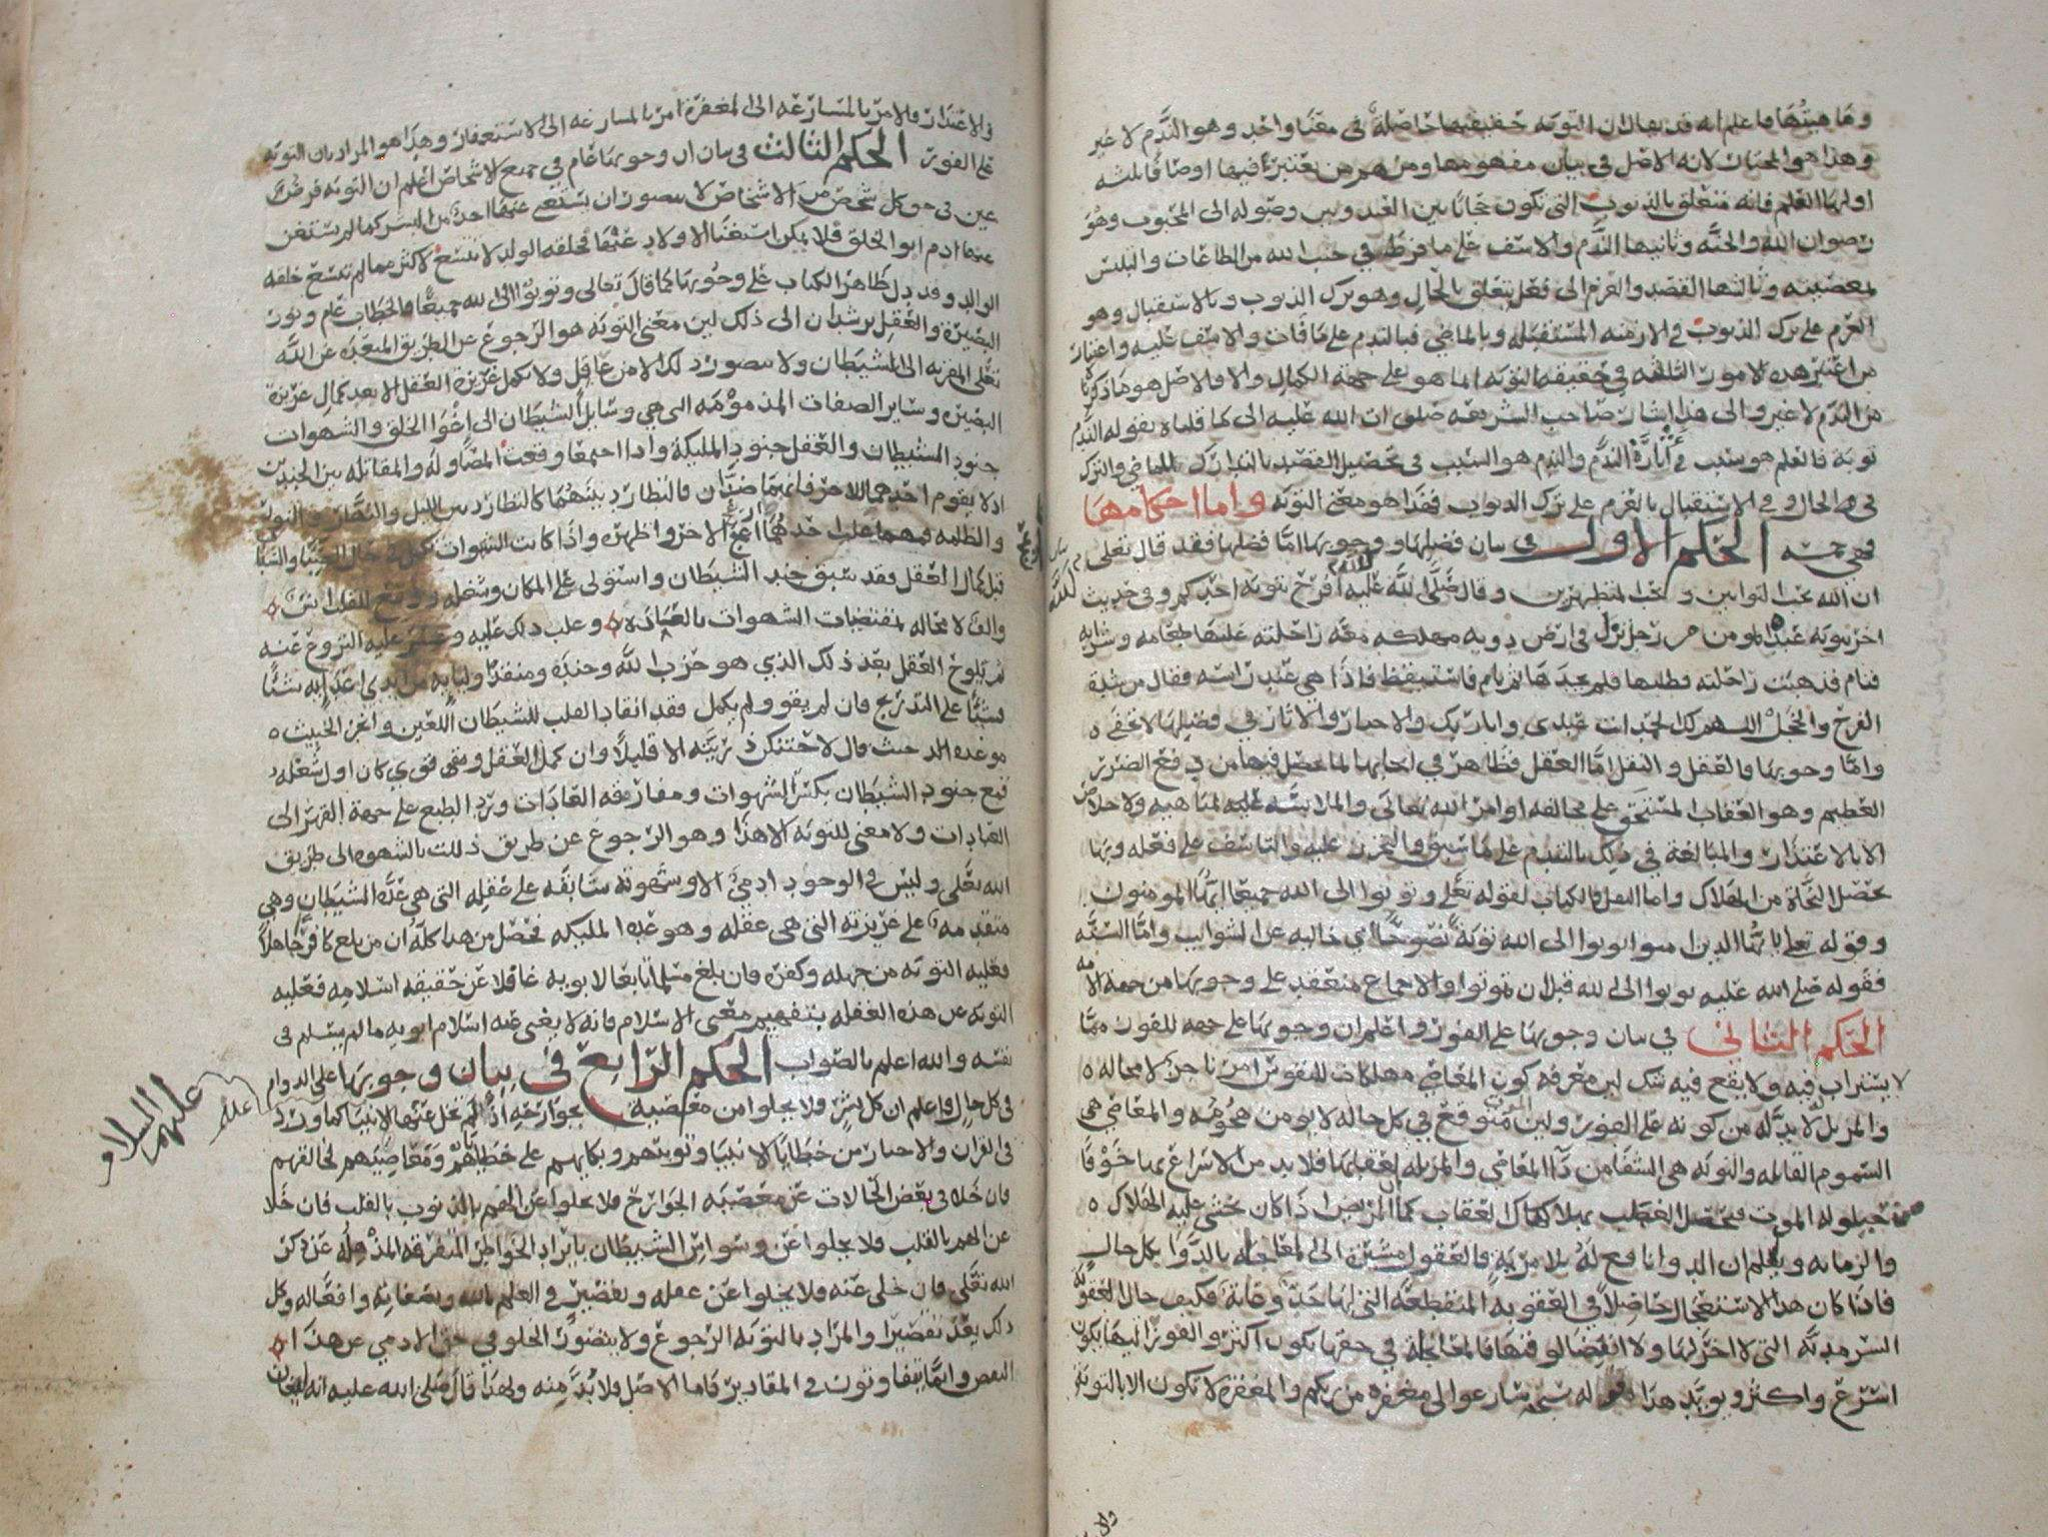 وماهيتها فاعلم انه قد يقال ان التوبه حقيقتها حاصلة في معنا واحد وهو الندم لا غير
وهذا هو المختار لانه الاصل في بيان مفهومها ومنهم من يعتبر فيها اوصافا ثلثه
اولها العلم فانه متعلق بالذنوب التي تكون حجابا بين العبد وبين وصوله الى المحبوب وهو
رضوان الله والجنه وثانيها الندم والاسف على ما فرط في جنب الله من الطاعات والتلبس
بمعصيته وثالثها القصد والعزم الى فعل يتعلق بالحال وهو ترك الذنوب وبالاستقبال وهو
العزم على ترك الذنوب في الازمنه المستقبله وبالماضي فبالندم على ما فات والاسف عليه واعتبار
من اعتبر هذه الامور الثلثه في حقيقه التوبه انما هو على جهة الكمال والا فالاصل هو ما ذكرنا
من الندم لا غير والى هذا اشار صاحب الشريعه صلوات الله عليه الى ما قلناه بقوله الندم
توبه فالعلم هو سبب في اثارة الندم والندم هو السبب في تحصيل القصد بالتدارك للماضي والترك
في الحال وفي الاستقبال بالعزم على ترك الذنوب فهذا هو معنى التوبه واما احكامها
فهي خمسه الحكم الاول في بيان فضلها ووجوبها اما فضلها فقد قال تعلى
ان الله يحب التوابين ويحب المتطهرين وقال صلى الله عليه لله افرح بتوبه احدكم وفي حديث
اخر بتوبه عبده المومن من رجل نزل في ارض دويه مهلكه معه راحلته عليها طعامه وشرابه
فنام فذهبت راحلته فطلبها فلم يجدها ثم نام فاستيقظ فاذا هي عند راسه فقال من شدة
الفرح والخجل اللهم لك الحمد انت عبدي وانا ربك والاخبار والاثار في فضلها لا تخفى ه
واما وجوبها فالعقل والنقل اما العقل فظاهر في ايجابها لما يحصل فيها من دفع الضرر
العظيم وهو العقاب المستحق على مخالفه اوامر الله تعالى والملابسه لمناهيه ولا خلاص
الا بالاعتذار والمبالغة في ذلك بالندم على ما سبق والتحزن عليه والتاسف على فعله وبها
تحصل النجاة من الهلاك واما النقل فالكتاب لقوله تعلى وتوبوا الى الله جميعا ايها المومنون
وقوله تعلى يا ايها الذين امنوا توبوا الى الله توبة نصوحا اي خاليه عن الشوايب واما السنه
فقوله صلى الله عليه توبوا الى الله قبل ان تموتوا والاجماع منعقد على وجوبها من جهه الامه
الحكم الثاني في بيان وجوبها على الفور واعلم ان وجوبها على جهه الفور مما
لا يستراب فيه ولا يقع فيه شك لان معرفه كون المعاصي مهلكات للنفوس امر ناجز لا محاله ه
والمزيل لا بد له من كونه على الفور ولان الموت متوقع في كل حاله لا يومن هجومه والمعاصي هي
السموم القاتله والتوبه هي الشفا من دآ المعاصي والمزيله لعقابها فلا بد من الاسراع بها خوفا
من حيلوله الموت فيحصل العطب بهلاكها كالعقاب كما المريض اذا كان يخشى عليه الهلاك ه
والزمانه ويعلم ان الدوا نافع له بلا مرية فالعقول مشيرة الى المعاجله بالدوا بكل حال
فاذا كان هذا الاستعجال حاصلا في العقوبه المنقطعة التي لها حد وغاية فكيف حال العقوبه
السرمديه التي لا اخر لها ولا انفصال فيها فالمعاجلة في حقها تكون اكثر والفور اليها يكون
اسرع واكثر ويويد هذا قوله سبحنه سارعوا الى مغفرة من ربكم والمغفرة لا تكون الا بالتوبة
والاعتذار فالامر بالمسارعه الى المغفرة امر بالمسارعه الى الاستغفار وهذا هو المراد بان التوبه
على الفور الحكم الثالث في بيان ان وجوبها عام في جميع الاشخاص اعلم ان التوبه فرض
عين في حق كل شخص من الاشخاص لا يتصور ان يستغني عنها احد من البشر كما لم يستغن
عنها ادم ابو الخلق فلا يمكن استغنا الاولاد عنها فخلقه الولد لا تتسع لاكثر مما لم تتسع خلقه
الوالد وقد دل ظاهر الكتاب على وجوبها كما قال تعالى وتوبوا الى الله جميعا فالخطاب عام ونور
البصيرة والعقل يرشدان الى ذلك لان معنى التوبه هو الرجوع عن الطريق المبعده عن الله
تعلى المقربه الى الشيطان ولا يتصور ذلك الا من عاقل ولا تكمل غريزة العقل الا بعد كمال غريزة
البصيره وساير الصفات المذمومه التي هي وسايل الشيطان الى اغوا الخلق والشهوات
جنود الشيطان والعقل جنود المليكة واذا اجتمعا وقعت المصاوله والمقاتله بين الجندين
اذ لا يقوم احدهما للاخر فانهما ضدان فالتطارد بينهما كالتطارد بين الليل والنهار والنور
والظلمه ومهما غلب احدهما ازعج الاخر واظهره واذا كانت الشهوات تكمل في حال الصبا والشباب
قبل كمال العقل فقد سبق جند الشيطان واستولى على المكان وشغله ووقع للقلب انس
والف لا محاله لمقتضيات الشهوات بالعاده وغلب ذلك عليه وعسر عليه النزوع عنه
ثم يلوح العقل بعد ذلك الذي هو حزب الله وجنده ومنقذ اوليايه من ايدي اعدايه شيئا
فشيئا على التدريج فان لم يقو ولم يكمل فقد انقاد القلب للشيطان اللعين وانجز الخبيث ه
موعده الذي حيث قال لاحتنكن ذريته الا قليلا وان كمل العقل وبقي قوي كان اول شغله
قمع جنود الشيطان بكسر الشهوات ومفارقه العادات ورد الطبع على جهة القهر الى
العبادات ولا معنى للتوبه الا هذا وهو الرجوع عن طريق ذللت بالشهوه الى طريق
الله تعلى وليس في الوجود ادمي الا وشهوته سابقه على عقله التي هي عدة الشيطان وهي
متقدمه على غريزته التي هي عقله وهو عدة المليكه فحصل من هذا كله ان من بلغ كافرا جاهلا
فعليه التوبه من جهله وكفره فان بلغ مسلما تابعا لابويه غافلا عن حقيقه اسلامه فعليه
التوبه عن هذه الغفله بتفهم معنى الاسلام فانه لا يغني عنه اسلام ابويه ما لم يسلم في
نفسه والله اعلم بالصواب الحكم الرابع في بيان وجوبها على الدوام
في كل حال واعلم ان كل بشر فلا يخلوا من معصية بجوارحه اذ لم تخل عنها الانبيا كما ورد
في القران والاخبار من خطايا الانبيا وتوبتهم وبكايهم على خطاياهم ومعاصيهم لخالقهم
عليهم السلام
فان خلا في بعض الحالات عن معصيه الجوارح فلا يخلوا عن الهم بالذنوب بالقلب فان خلا
عن الهم بالقلب فلا يخلوا عن وسواس الشيطان بايراد الخواطر المتفرقه المذهله عن ذكر
الله تعلى فان خلى عنه فلا يخلوا عن غفله وتقصير في العلم بالله وبصفاته وافعاله وكل
ذلك يعد تقصيرا والمراد بالتوبه الرجوع ولا يتصور الخلو في حق الادمي عن هذا
النقص وانما يتفاوتون في المقادير فاما الاصل فلا بد منه ولهذا قال صلى الله عليه انه ليغان